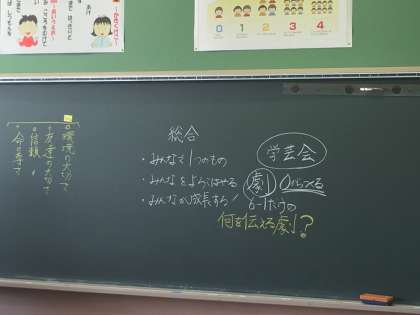 総合
・みんなで1つのもの
・みんなをよろこばせる
・みんなが成長する!
学芸会
劇 0からつくる
6-1だけの
何を伝える劇?
・環境の大切さ
・友達の大切さ
・信頼
・命の尊さ
0 1 2 3 4